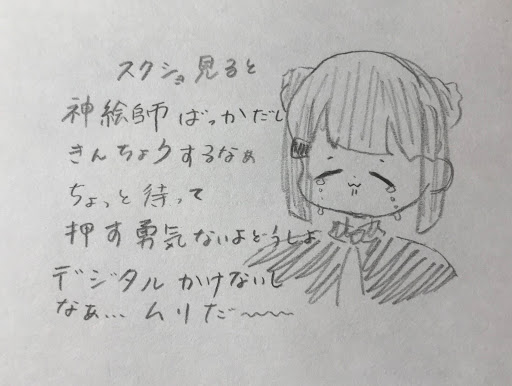 スクショ見ると
神絵師ばっかだし
きんちょうするなぁ
ちょっと待って
押す勇気ないよどうしよ
デジタルかけないし
なぁ…ムリだ〜〜